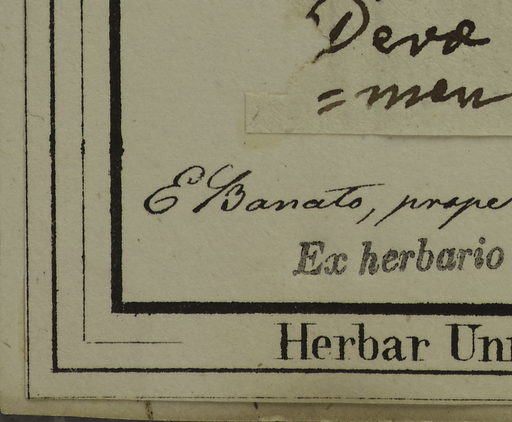 Devæ
=men
E Banato, prope
Ex herbario
Herbar Un